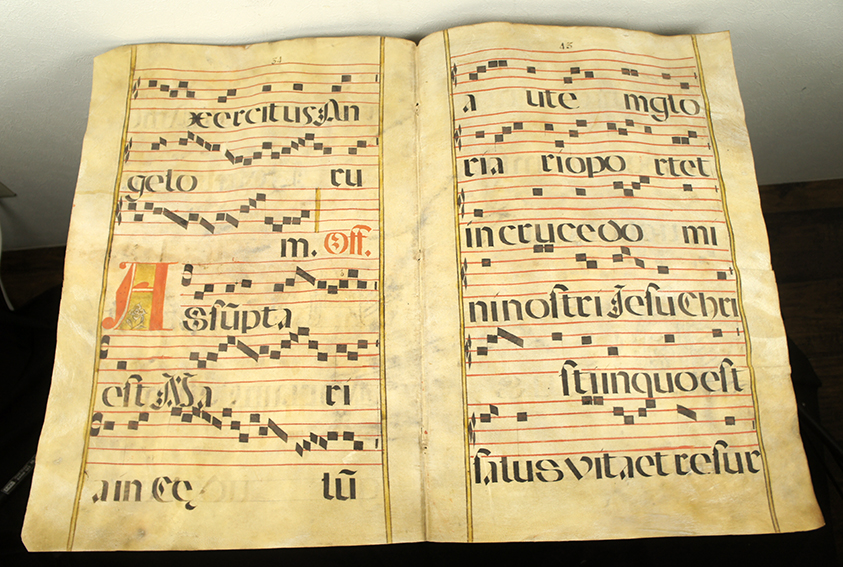 xercitus An
gelo ru
m. Off.
ASſũpta
eſt Ma ri
a in Cę lũ
a ute m glo
ria riopo rtet
in cruce do mi
ni noſtri Jeſu Chri
ſti in quo eſt
ſalus vita et reſur